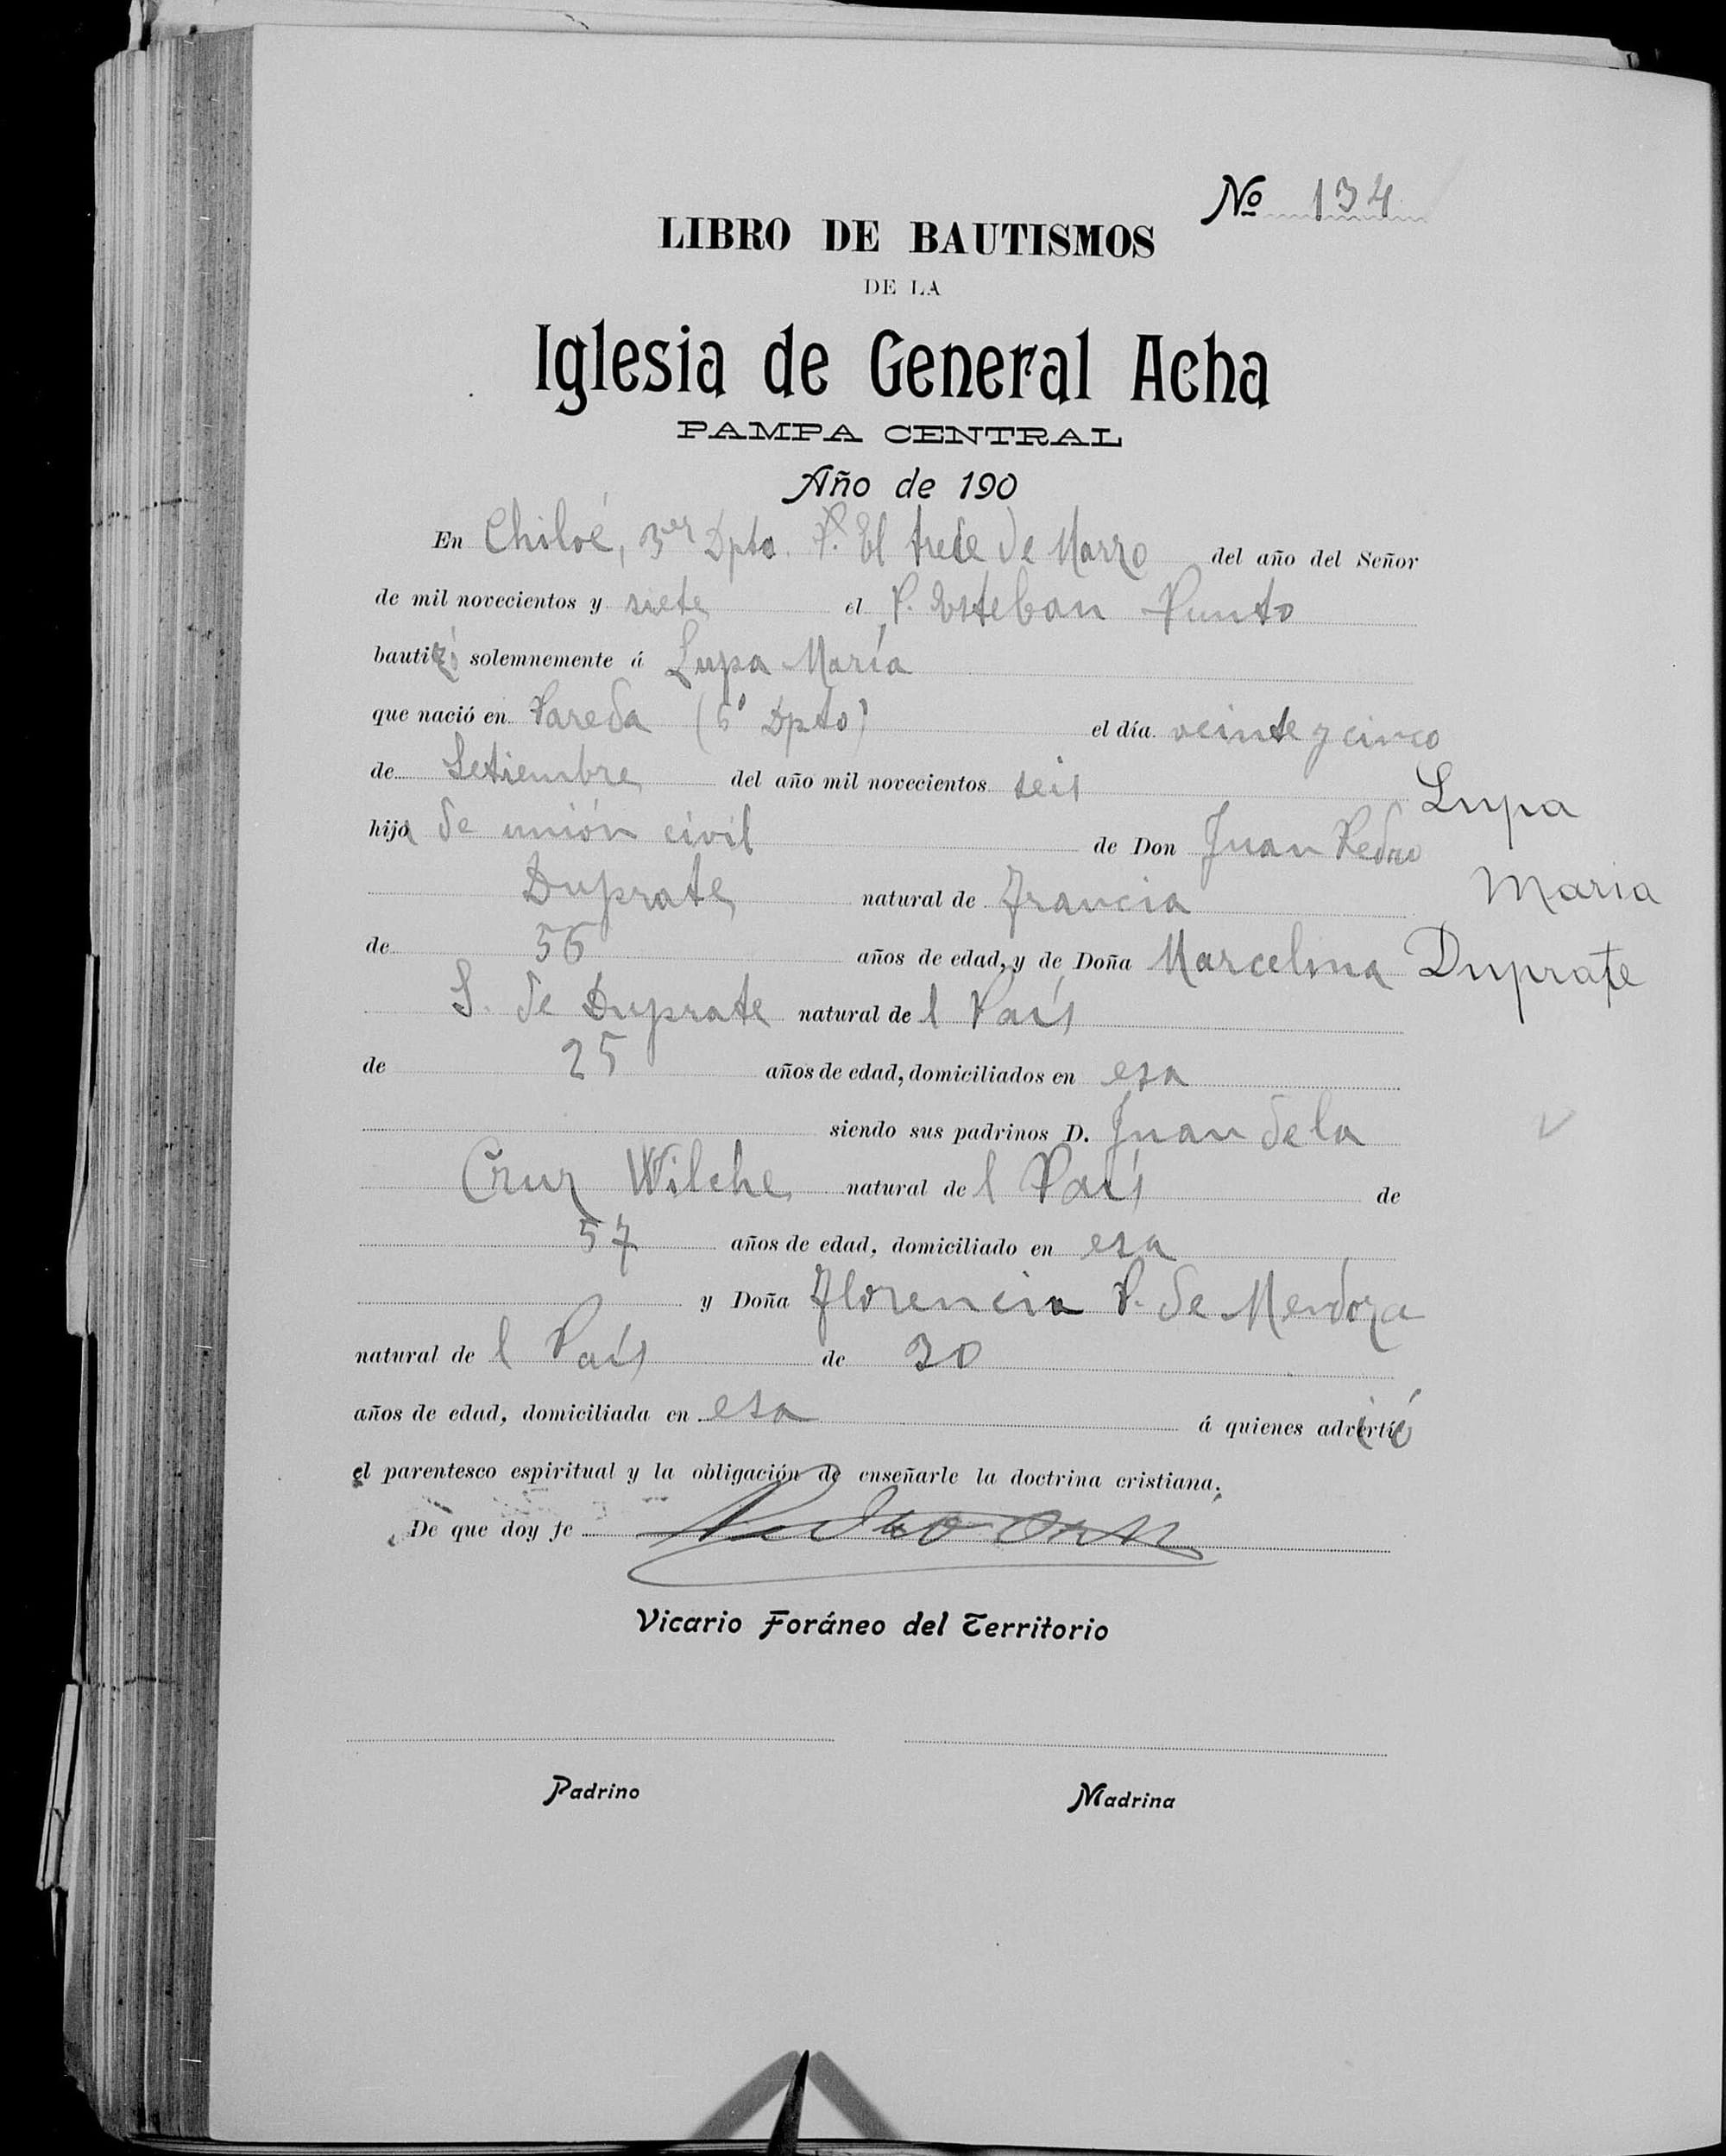 Nº 134
LIBRO DE BAUTISMOS
DE LA
Iglesia de General Acha
PAMPA CENTRAL
Año de 190
En Chiloé, 3er Dpto. P. El trece de Marzo del año del Señor
de mil novecientos y siete el P. Esteban Punto
bautizó solemnemente á Lupa María
que nació en Pareda (6º Dpto) el día veinte y cinco
de Setiembre del año mil novecientos seis
Lupa
hija de unión civil de Don Juan Pedro
Duprate natural de Francia
Maria
de 56 años de edad, y de Doña Marcelina
Duprate
S. de Duprate natural del País
de 25 años de edad, domiciliados en esa
siendo sus padrinos D. Juan de la
Cruz Wilche natural del País de
57 años de edad, domiciliado en esa
y Doña Florencia P. de Mendoza
natural del País de 30
años de edad, domiciliada en esa á quienes advirtió
el parentesco espiritual y la obligación de enseñarle la doctrina cristiana.
De que doy fe Pedro Orsi
Vicario Foráneo del Territorio
Padrino Madrina